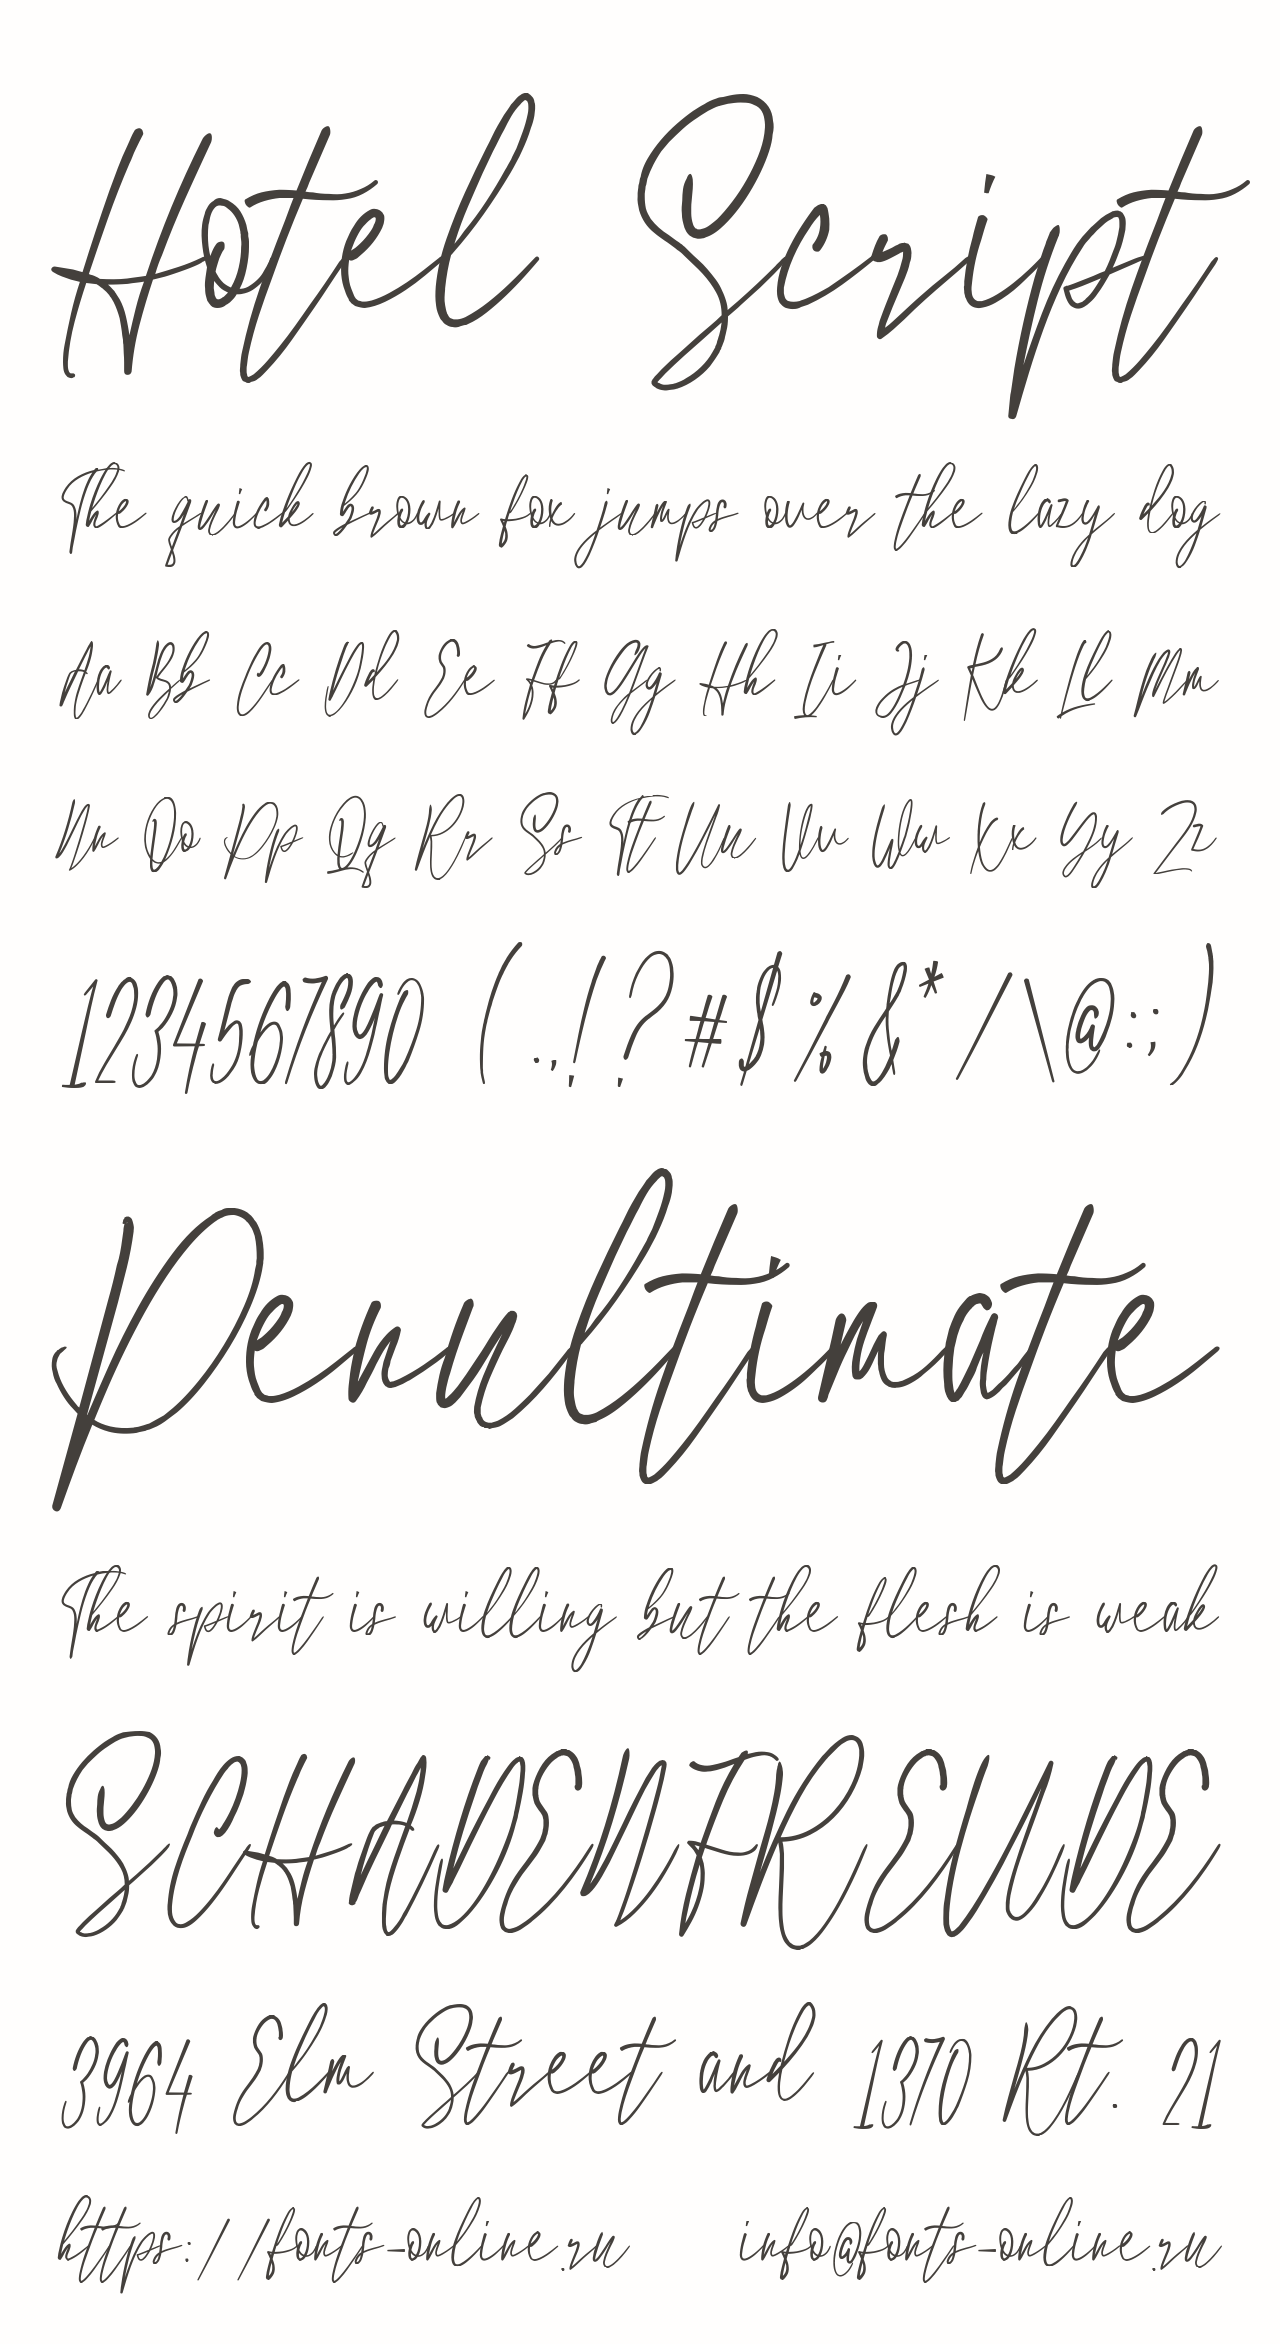 Hotel Script
The quick brown fox jumps over the lazy dog
Aa Bb Cc Dd Ee Ff Gg Hh Ii Jj Kk Ll Mm
Nn Oo Pp Qq Rr Ss Tt Uu Vv Ww Xx Yy Zz
1234567890 (.,!?#$%&*/\@:;)
Penultimate
The spirit is willing but the flesh is weak
SCHADENFREUDE
3964 Elm Street and 1370 Rt. 21
https://fonts-online.ru info@fonts-online.ru